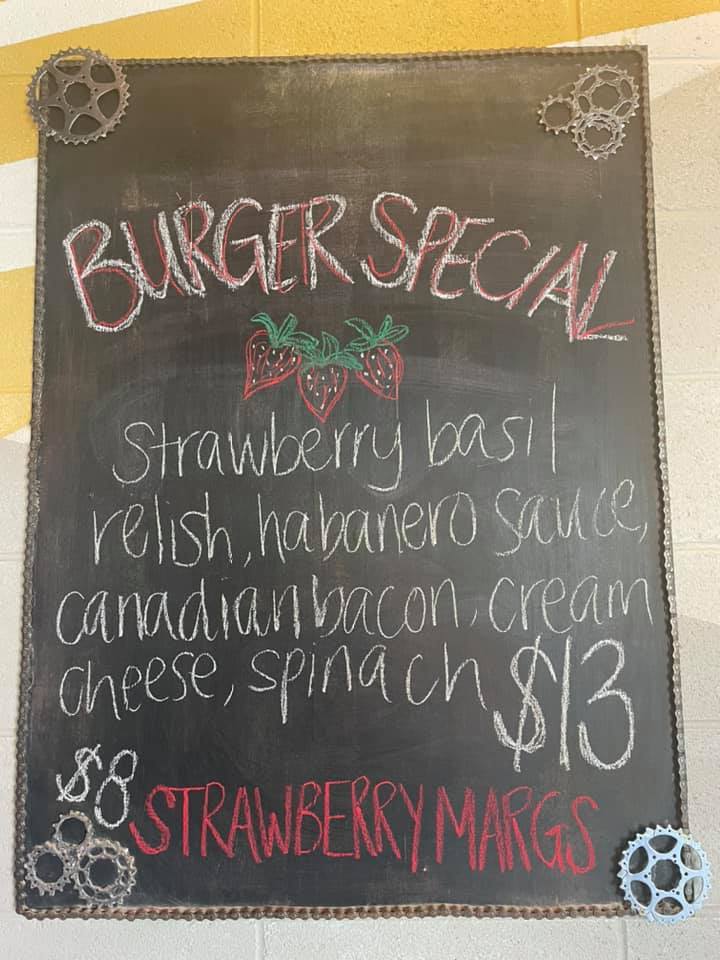 BURGER SPECIAL
Strawberry basil
relish, habanero sauce,
canadian bacon, cream
cheese, spinach $13
$8 STRAWBERRY MARGS